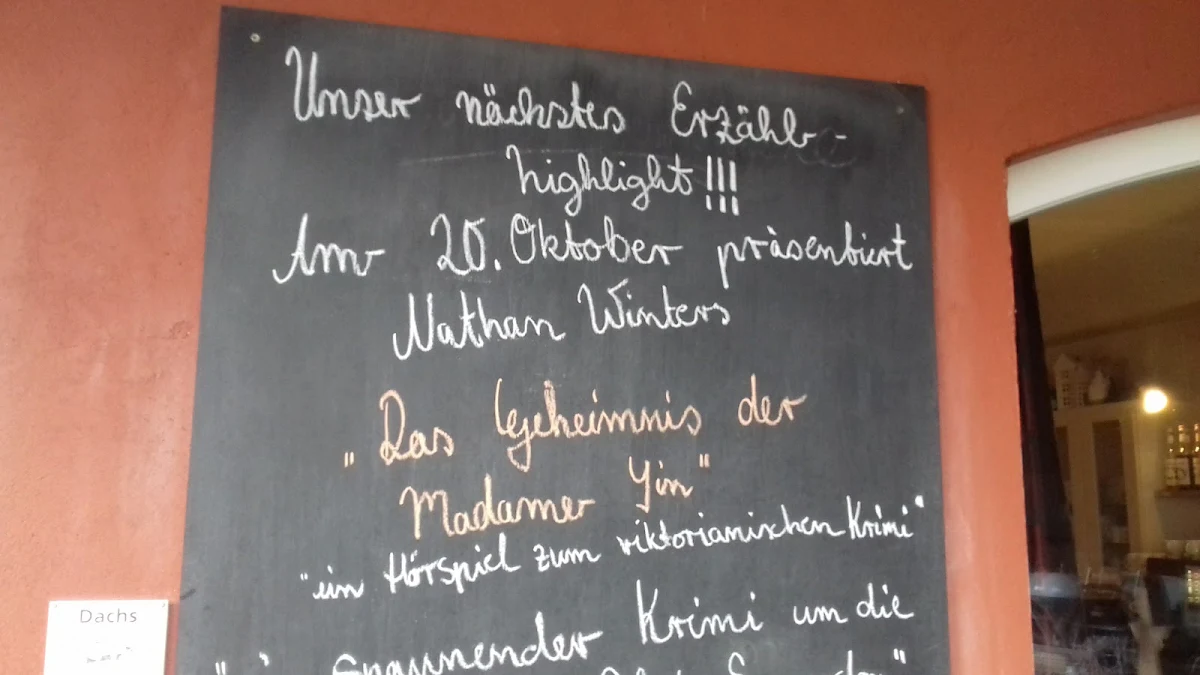 Unser nächstes Erzähl-
highlight!!!
Am 20. Oktober präsentiert
Nathan Winters
„Das Geheimnis der
Madame Yin"
"ein Hörspiel zum viktorianischen Krimi"
spannender Krimi um die
Dachs